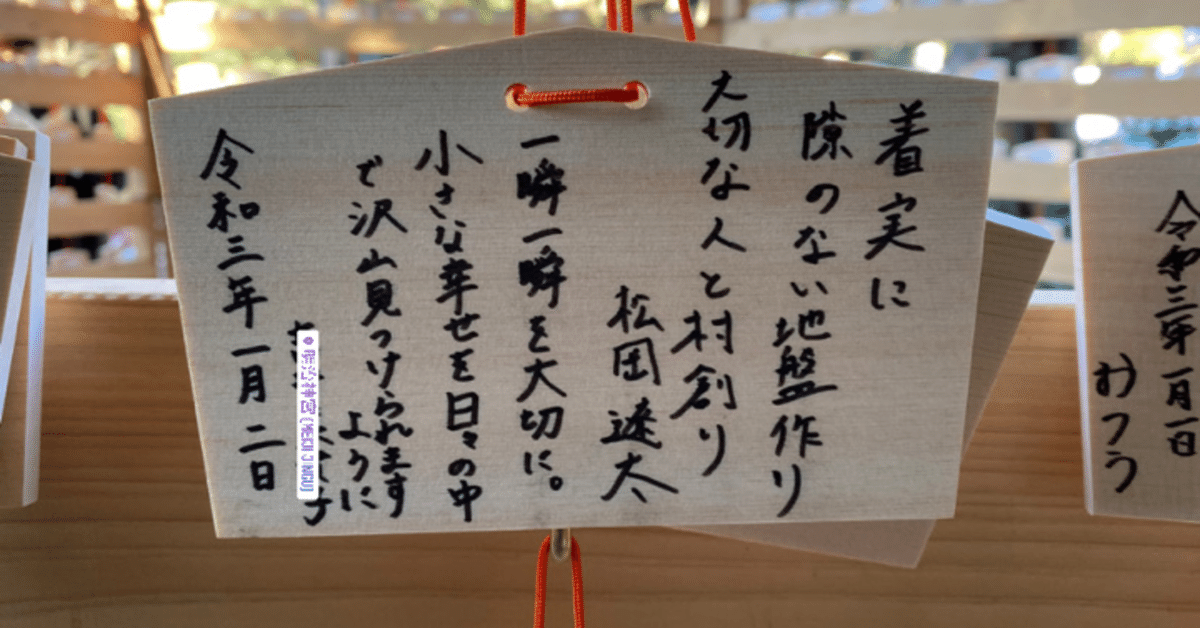 着実に
隙のない地盤作り
大切な人と村創り
松岡遼太
一瞬一瞬を大切に。
小さな幸せを日々の中
で沢山見つけられます
ように
明治神宮 (MEIJI JINGU)
令和三年一月二日
令和三年一月一日
おつう